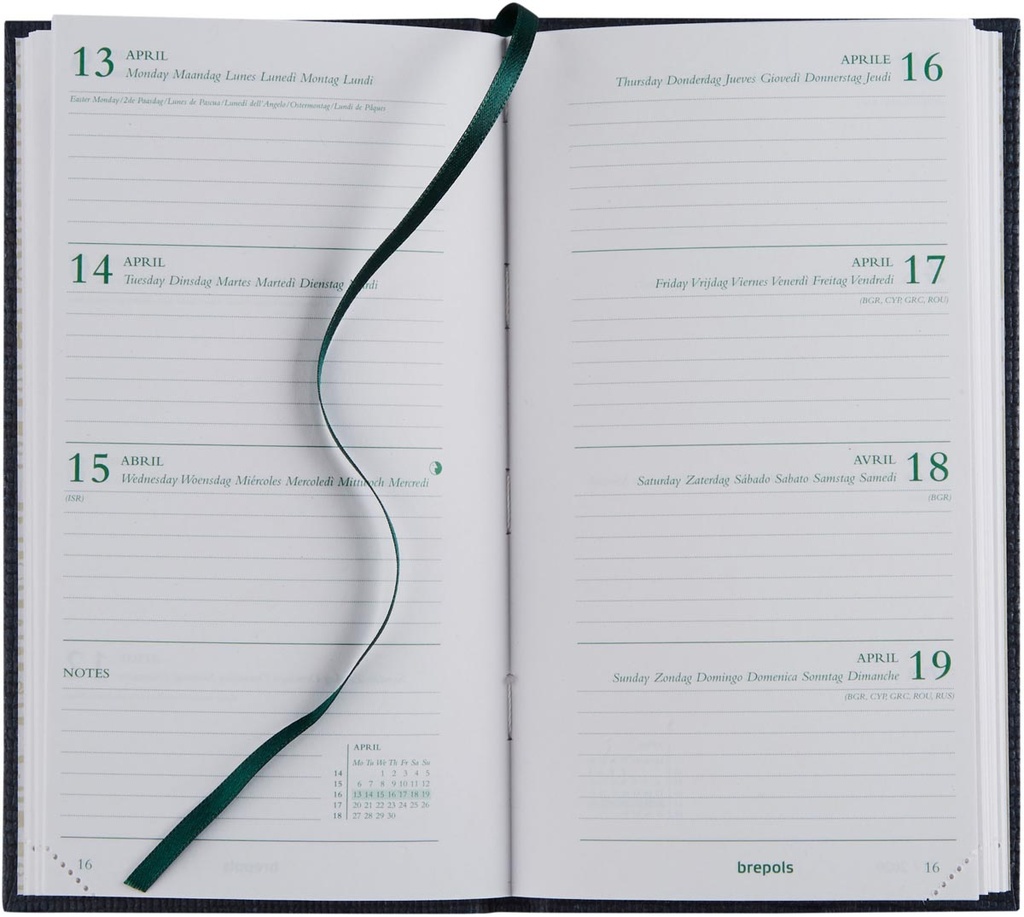 13 APRIL
Monday Maandag Lunes Lunedì Montag Lundi
Easter Monday/2de Paasdag/Lunes de Pascua/Lunedì dell'Angelo/Ostermontag/Lundi de Pâques
14 APRIL
Tuesday Dinsdag Martes Martedì Dienstag
15 ABRIL
Wednesday Woensdag Miércoles Mercoledì Mittwoch Mercredi
(ISR)
NOTES
APRIL
Mo Tu We Th Fr Sa Su
14 1 2 3 4 5
15 6 7 8 9 10 11 12
16 13 14 15 16 17 18 19
17 20 21 22 23 24 25 26
18 27 28 29 30
16
APRILE 16
Thursday Donderdag Jueves Giovedì Donnerstag Jeudi
APRIL 17
Friday Vrijdag Viernes Venerdì Freitag Vendredi
(BGR, CYP, GRC, ROU)
AVRIL 18
Saturday Zaterdag Sábado Sabato Samstag Samedi
(BGR)
APRIL 19
Sunday Zondag Domingo Domenica Sonntag Dimanche
(BGR, CYP, GRC, ROU, RUS)
brepols 16